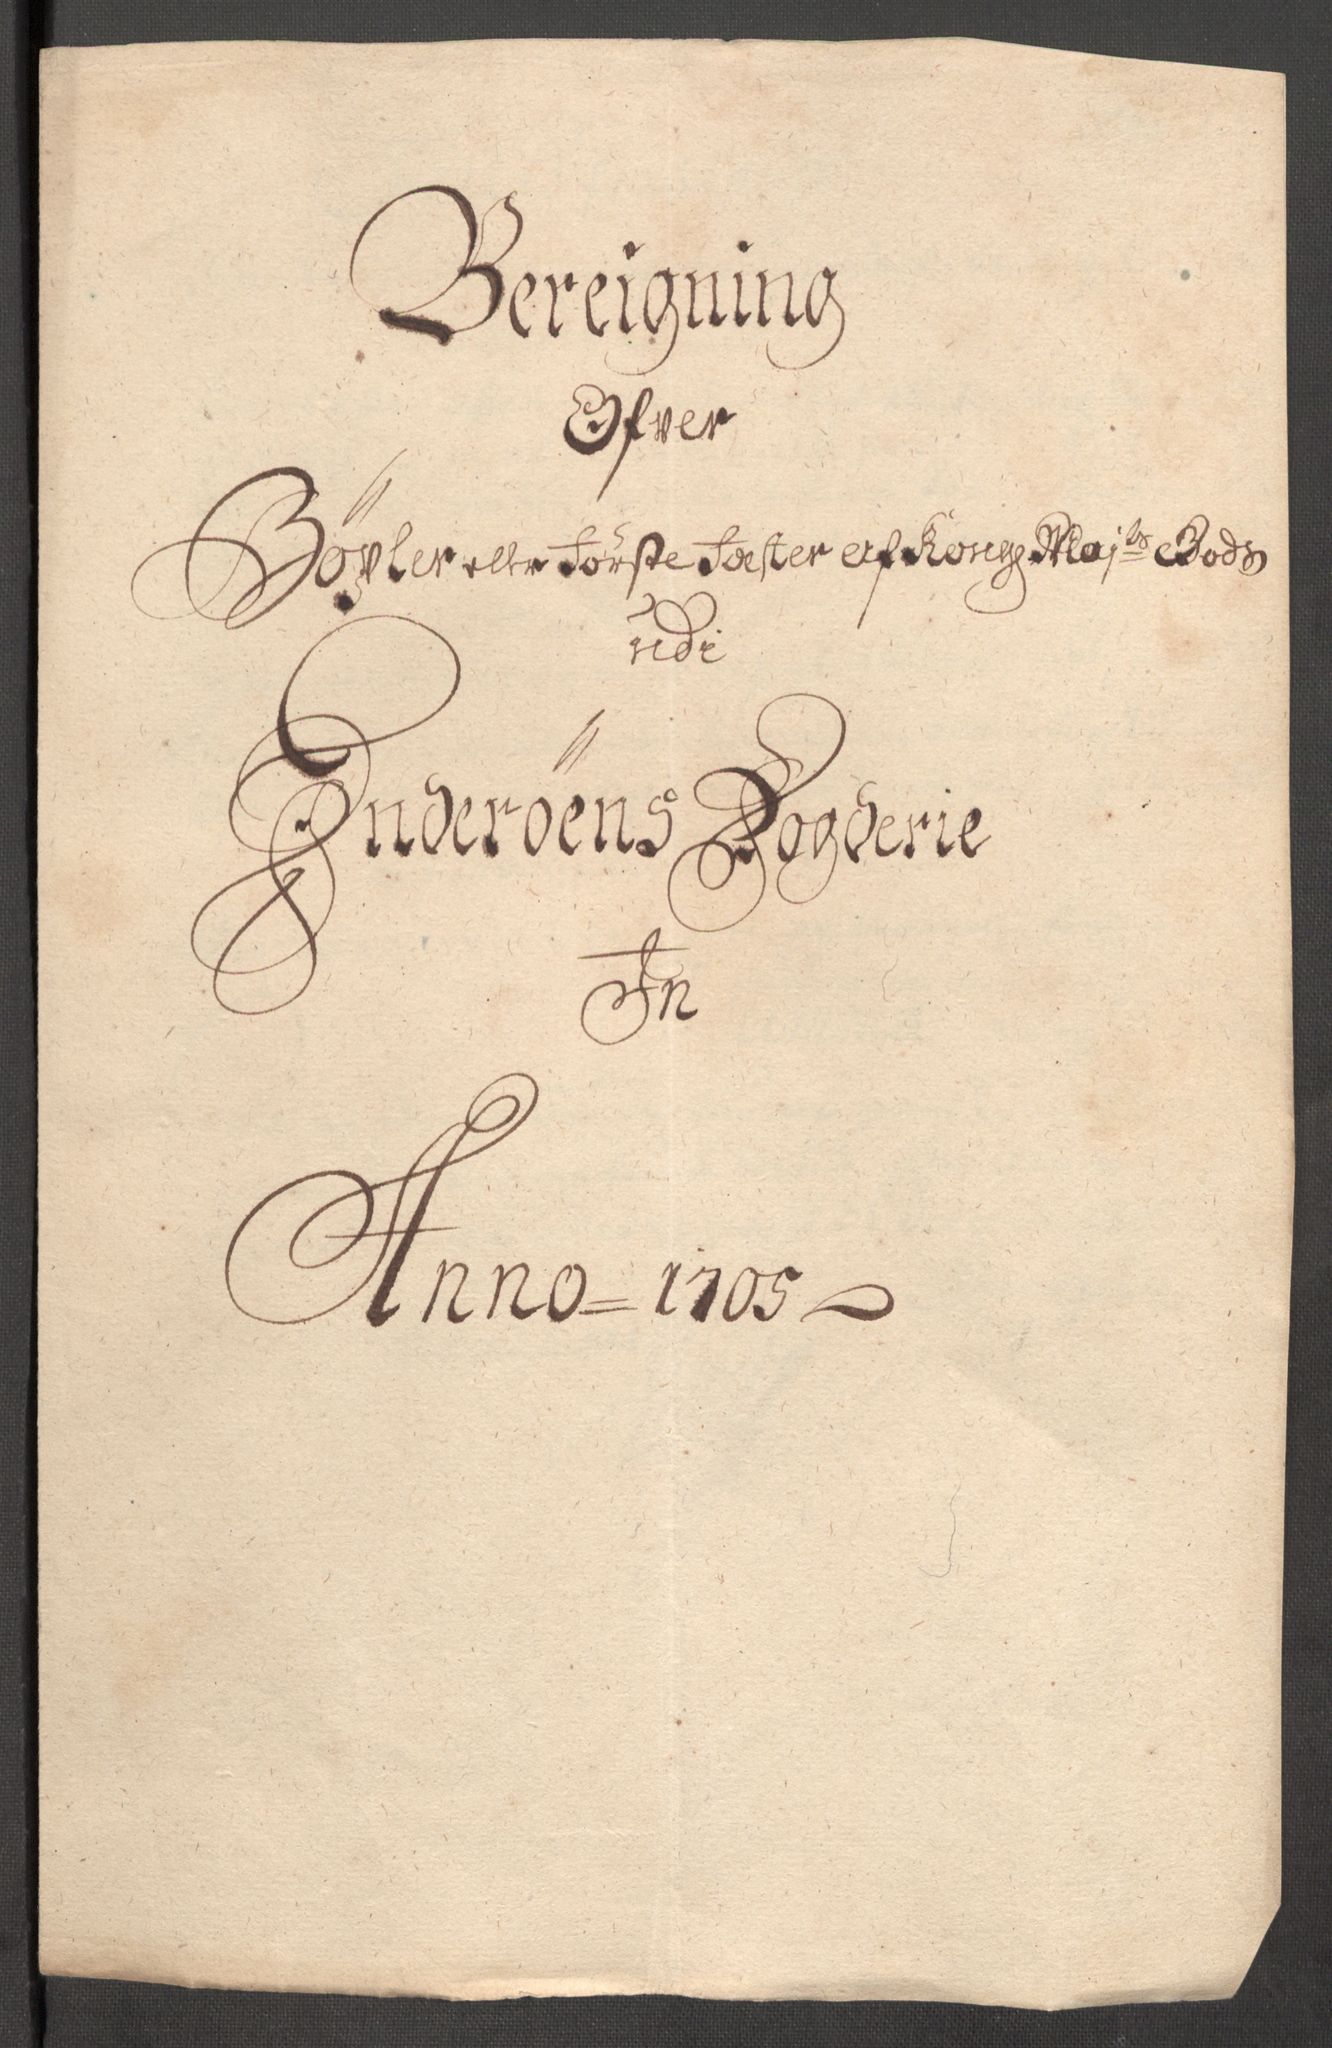 Bereigning
Ofver
Böxler eller Förste Fæster af Kong Maj:ts Gods
udi
Inderöens Fogderie
In
Anno = 1705